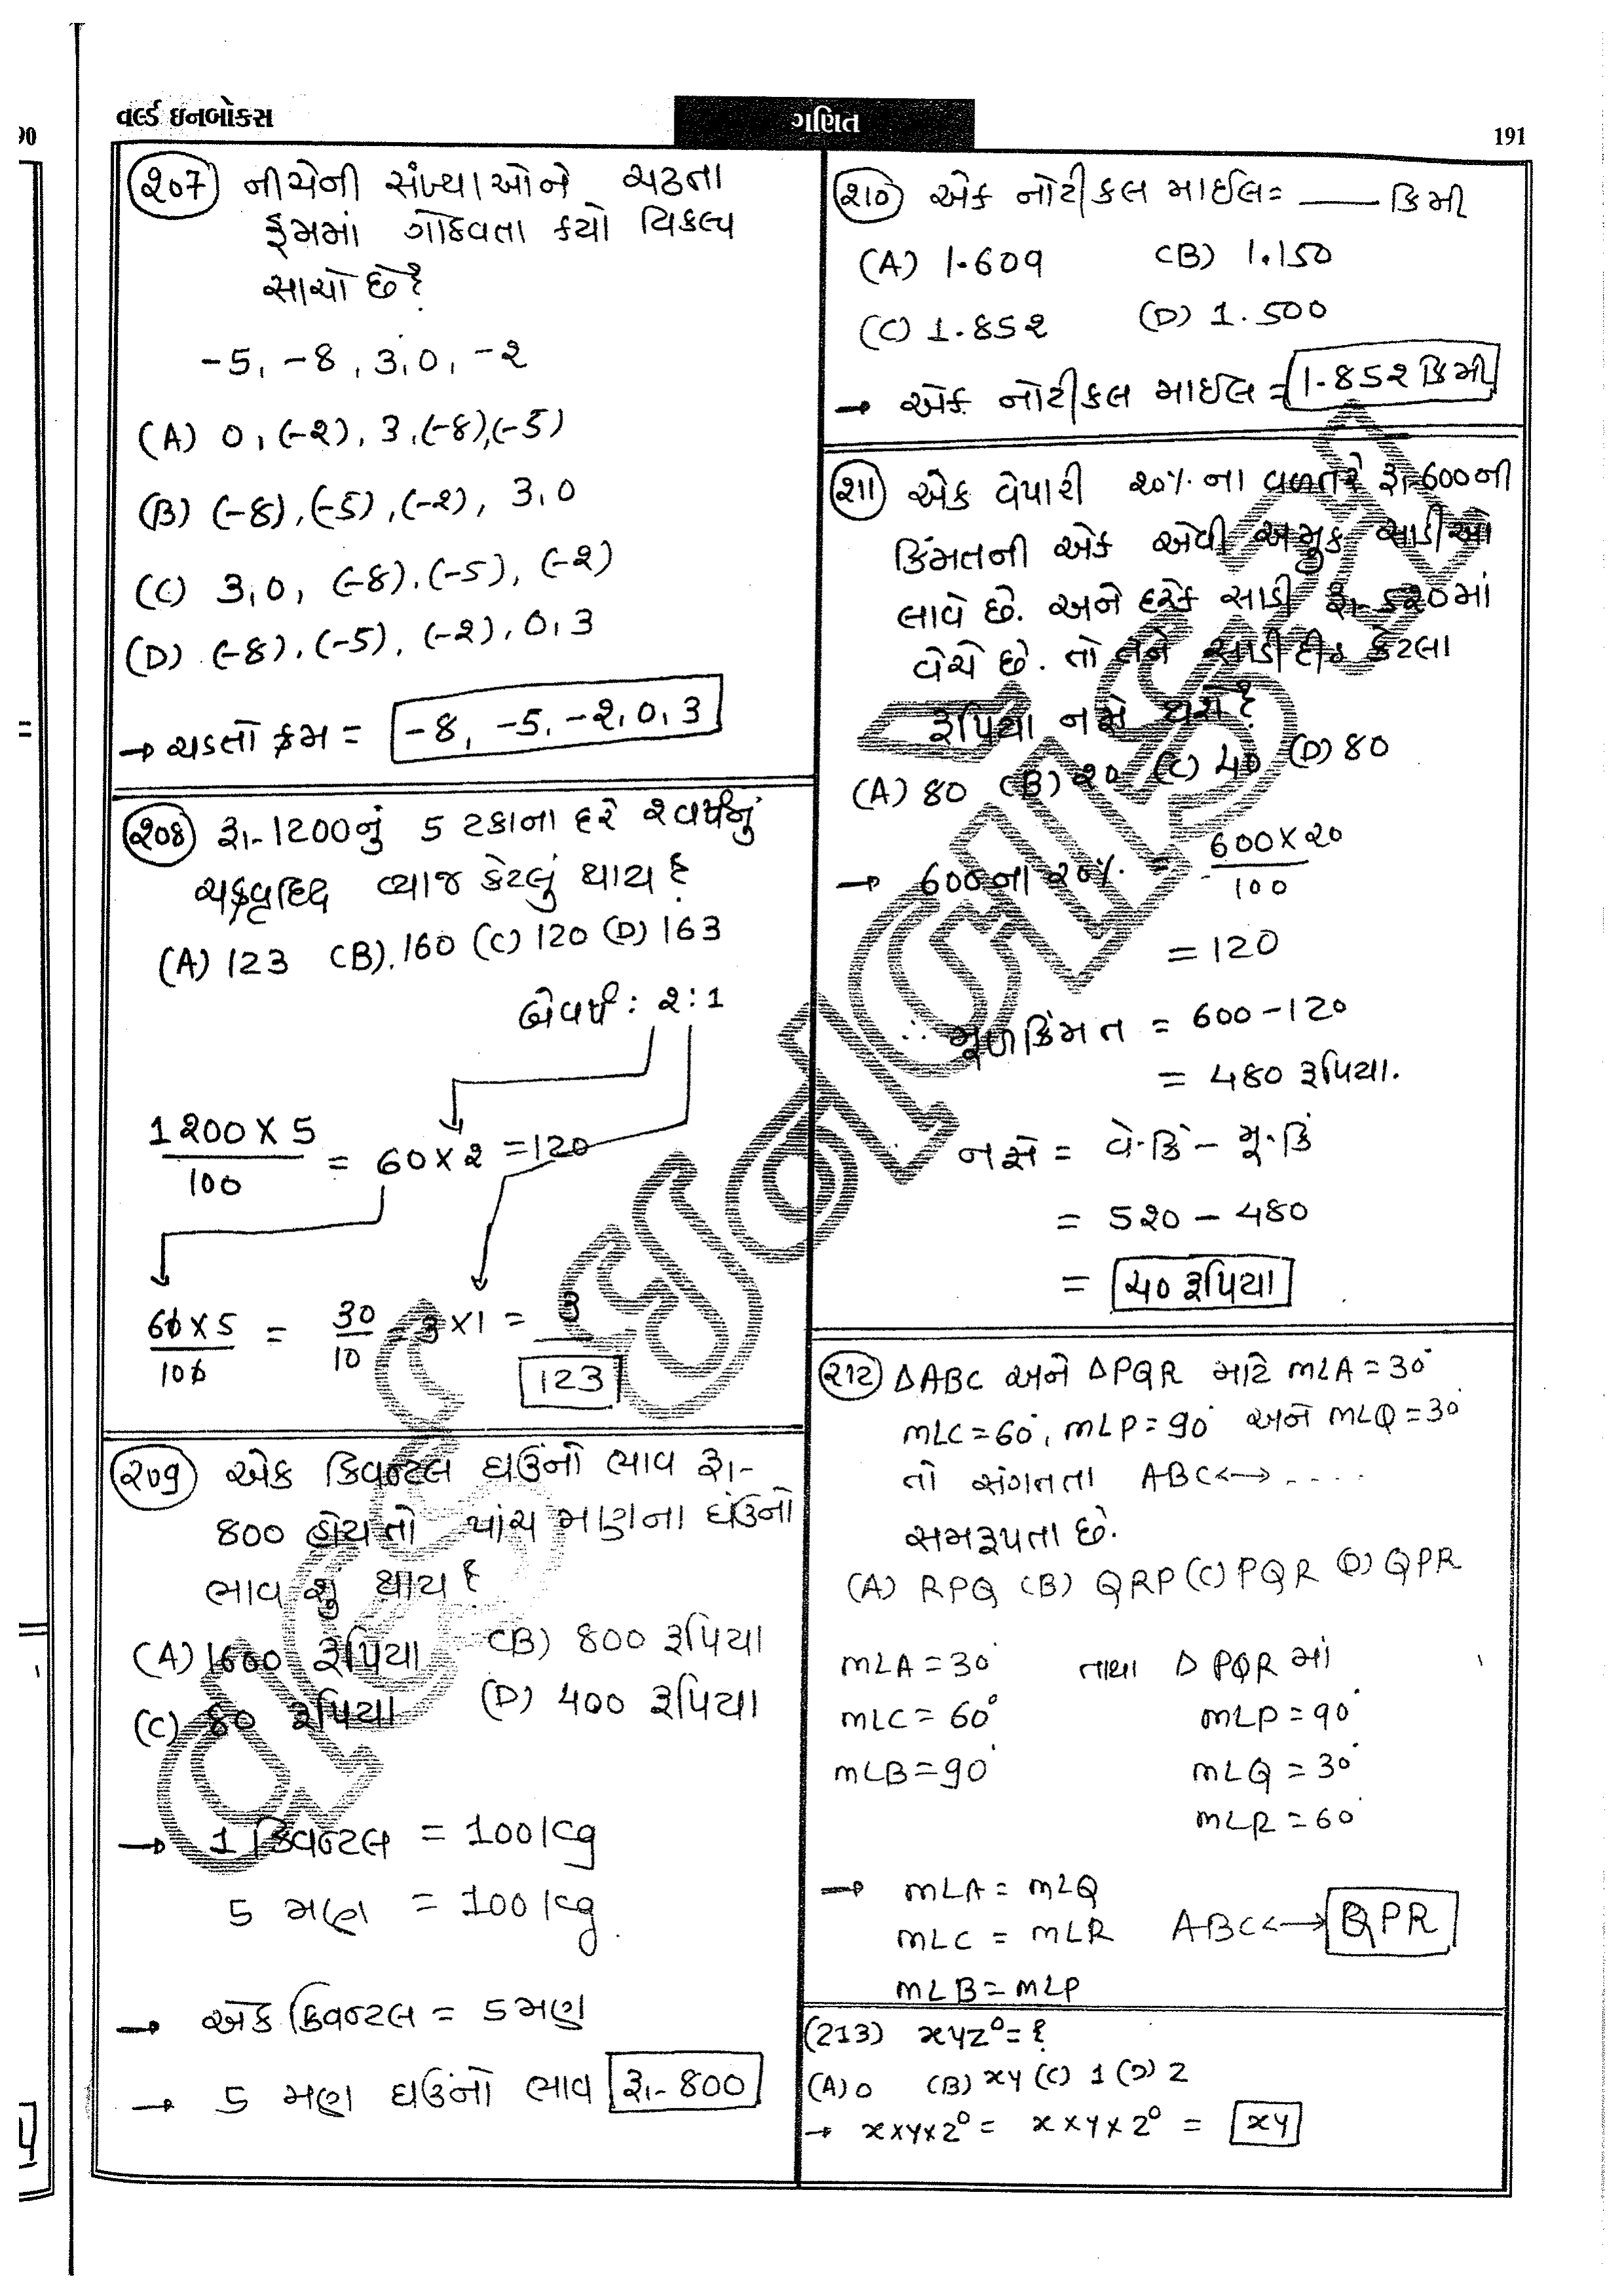 વર્લ્ડ ઇનબોક્સ
ગણિત
191
૨૦૭ નીચેની સંખ્યાઓને ચઢતા
ક્રમમાં ગોઠવતા કયો વિકલ્પ
સાચો છે?
-5, -8, 3, 0, -૨
(A) 0, (-૨), 3, (-8), (-5)
(B) (-8), (-5), (-૨), 3, 0
(C) 3, 0, (-8), (-5), (-૨)
(D) (-8), (-5), (-૨), 0, 3
→ ચડતો ક્રમ = -8, -5, -૨, 0, 3
૨૦૪ રૂા- 1200નું 5 ટકાના દરે ૨ વર્ષનું
ચક્રવૃદ્ધિ વ્યાજ કેટલું થાય?
(A) 123 (B) 160 (C) 120 (D) 163
બેવર્ષ : ૨ : 1
1૨00 X 5
100
= 60 X ૨ = 120
60 X 5
100
= 30
10
= 3 X 1 = 3
123
૨૦9 એક ક્વિન્ટલ ઘઉંનો ભાવ રૂા-
800 હોય તો પાંચ મણના ઘઉંનો
ભાવ શુ થાય?
(A) 1600 રૂપિયા (B) 800 રૂપિયા
(C) 80 રૂપિયા (D) 400 રૂપિયા
→ 1 ક્વિન્ટલ = 100 kg
5 મણ = 100 kg.
→ એક ક્વિન્ટલ = 5 મણ
→ 5 મણ ઘઉંનો ભાવ રૂા- 800
૨10 એક નોટીકલ માઈલ = ___ કિમી
(A) 1.609 (B) 1.150
(C) 1.85૨ (D) 1.500
→ એક નોટીકલ માઈલ = 1.85૨ કિમી
૨11 એક વેપારી ૨0% ના વળતરે રૂા-600ની
કિંમતની એક એવી અમુક સાડીઓ
લાવે છે. અને દરેક સાડી રૂા- 5૨0માં
વેચે છે. તો તેને સાડી દીઠ કેટલા
રૂપિયા નફો થાય?
(A) 80 (B) ૨0 (C) 40 (D) 80
→ 600ના ૨0% = 600 X ૨0
100
= 120
∴ મૂળકિંમત = 600 - 120
= 480 રૂપિયા.
નફો = વે.કિં - મૂ.કિં
= 5૨0 - 480
= ૪0 રૂપિયા
૨1૨ ΔABC અને ΔPQR માટે m∠A = 30°
m∠C = 60°, m∠P = 90° અને m∠Q = 30°
તો સંગતતા ABC ↔ ....
સમરૂપતા છે.
(A) RPQ (B) QRP (C) PQR (D) QPR
m∠A = 30° તાથા Δ PQR માં
m∠C = 60° m∠P = 90°
m∠B = 90° m∠Q = 30°
m∠R = 60°
→ m∠A = m∠Q
m∠C = m∠R ABC ↔ QPR
m∠B = m∠P
(213) xyz° = ?
(A) 0 (B) xy (C) 1 (D) 2
→ x x y x z° = x x y x z° = xy